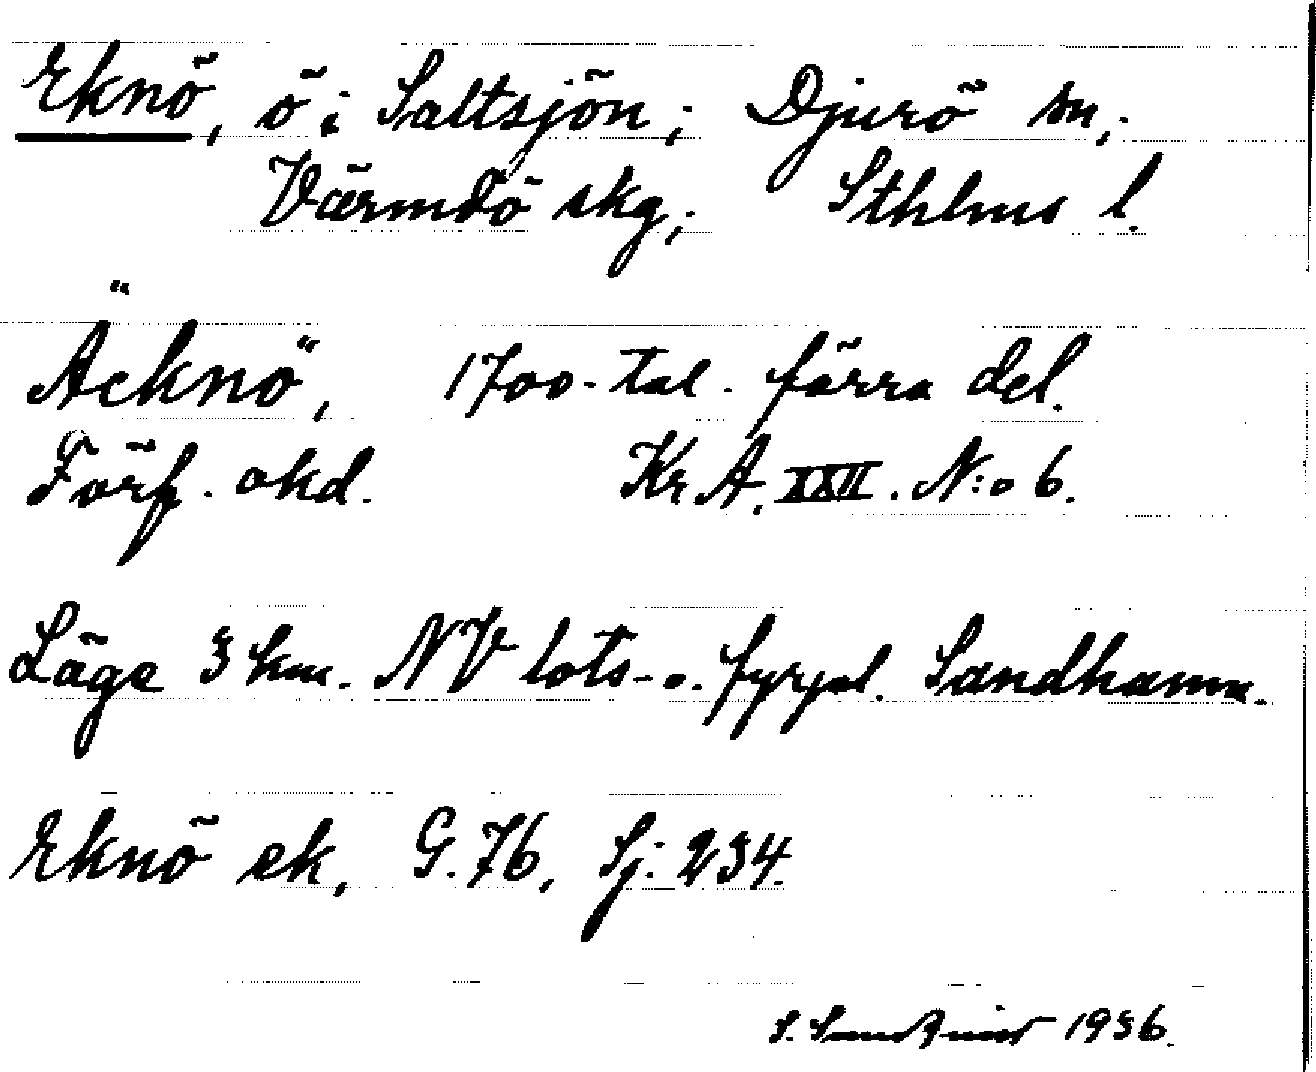 Eknö, ö i Saltsjön; Djurö sn;
Värmdö skg; Sthlms l.
Äcknö, 1700-tal. förra del.
Förf. okd. Kr A. XXII. N:o 6.
Läge 3 km. NV lots- o. fyrpl. Sandhamn.
Eknö ek, G. 76, Sj: 234.
S. 1936.